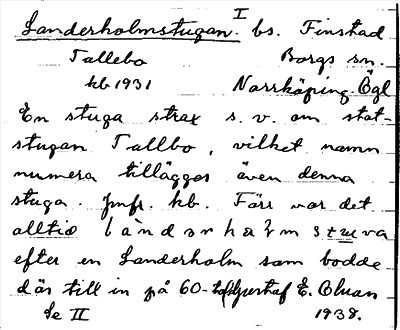 I
Landerholmstugan. bs. Finstad
Tallebo Borgs sn.
kb 1931 Norrköping. Ögl
En stuga strax s. v. om stat-
stugan Tallbo, vilket namn
numera tillägges även denna
stuga. Jmfr. kb. Förr var det
alltid
efter en Landerholm som bodde
där till in på 60-talet E. Oluan
Se II 1938.